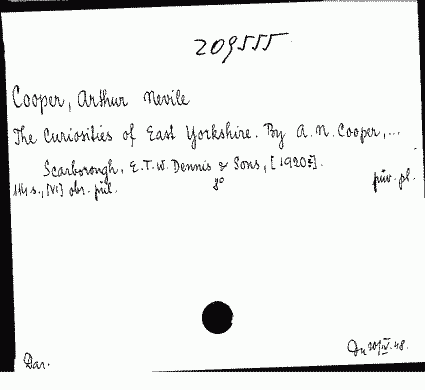 209555
Cooper, Arthur Nevile
The Curiosities of East Yorkshire. By A. N. Cooper,...
Scarborough, E.T.W. Dennis & Sons, [1920?].
114 s., [VI] obr. příl. 8° pův. pl.
Dar.
Du 20/IV.48.